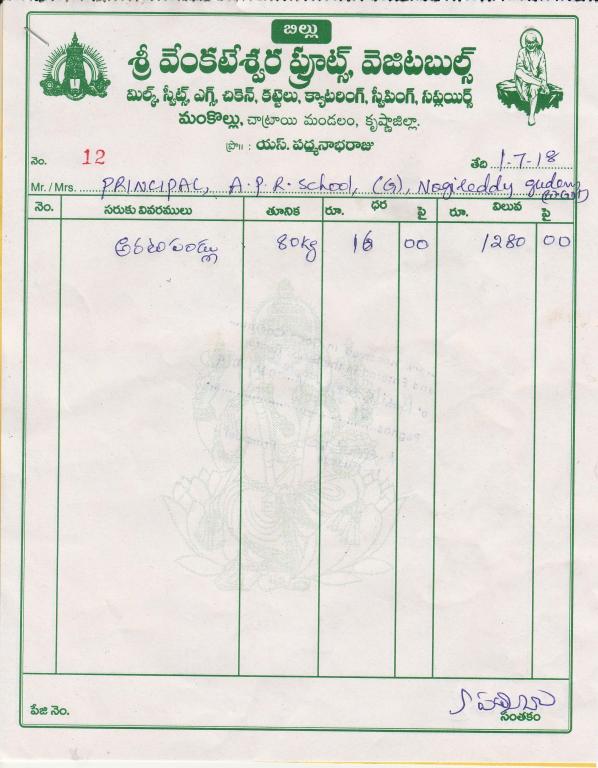 బిల్లు
శ్రీ వేంకటేశ్వర ఫ్రూట్స్, వెజిటబుల్స్
మిల్క్, స్వీట్స్, ఎగ్స్, చికెన్, కట్టెలు, క్యాటరింగ్, స్వీపింగ్, సప్లయిర్స్
మంకొల్లు, చాట్రాయి మండలం, కృష్ణాజిల్లా.
ప్రొ॥ : యస్. పద్మనాభరాజు
నెం. 12 తేది 1-7-18
Mr. / Mrs. PRINCIPAL, A.P.R. School, (G), Nagireddy gudem
నెం. సరుకు వివరములు తూనిక రూ. ధర పై రూ. విలువ పై
అరటి పండ్లు 80kg 16 00 1280 00
పేజి నెం. సంతకం